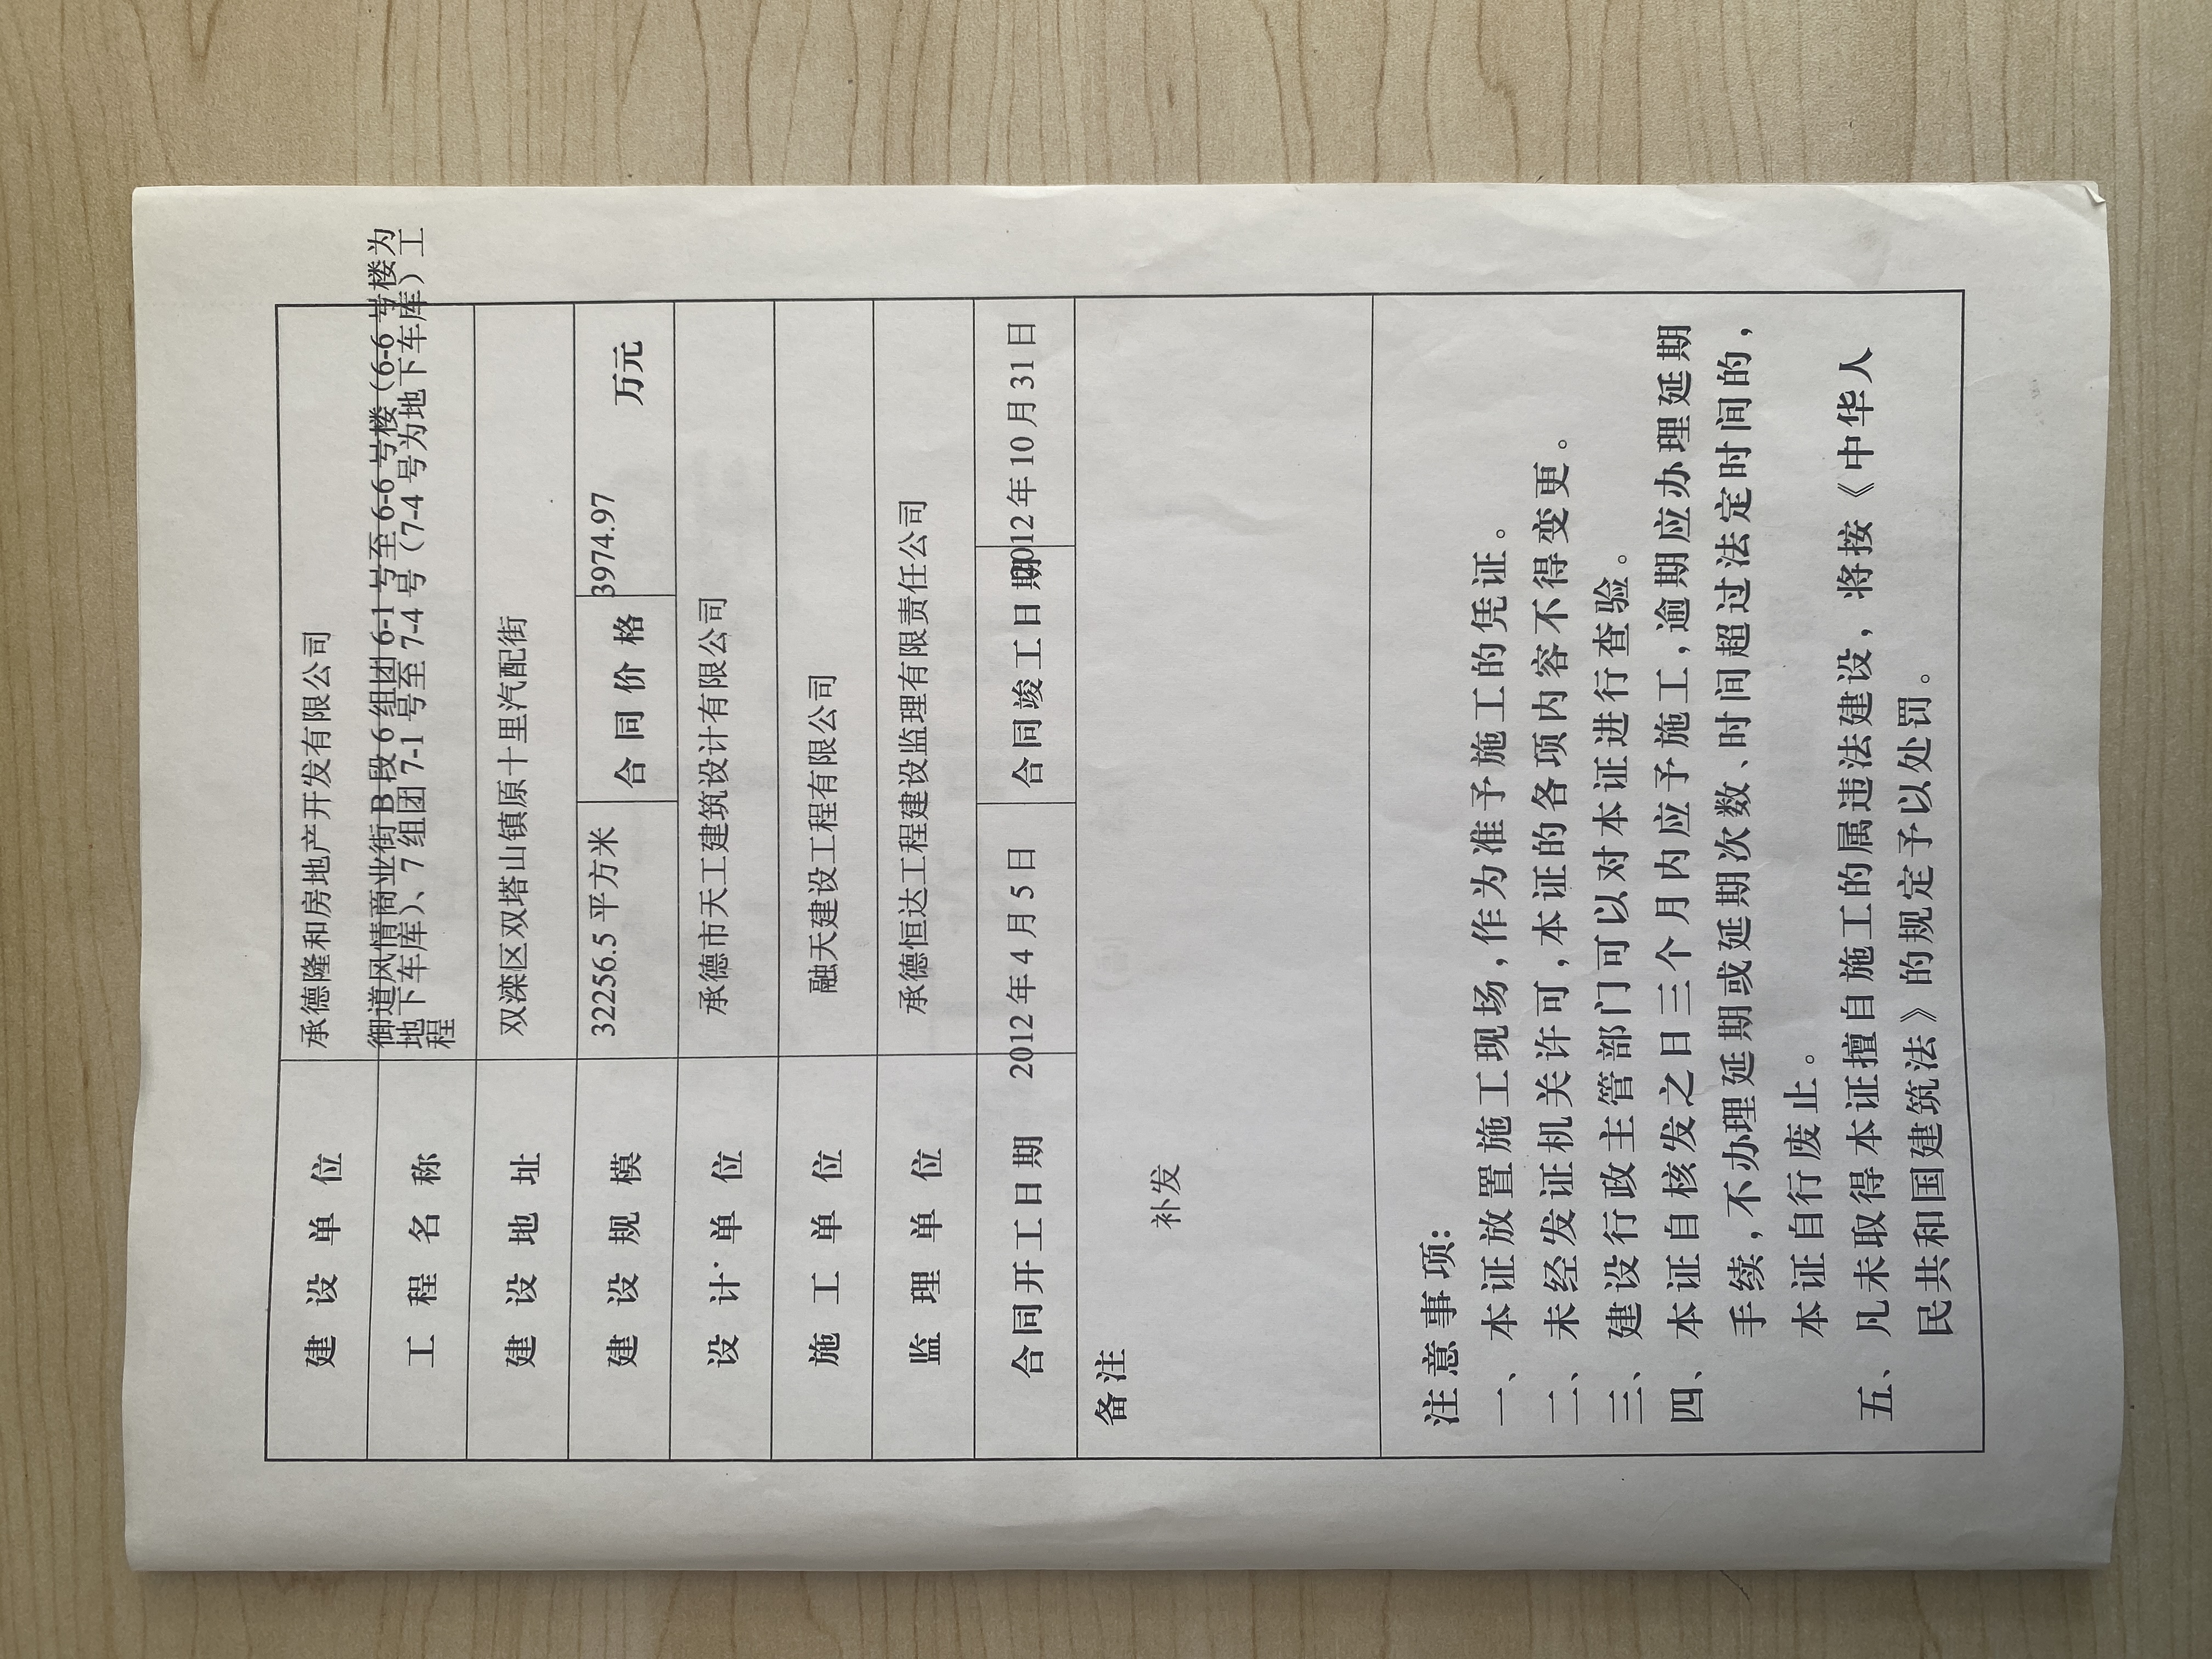 建设单位 承德隆和房地产开发有限公司
工程名称 御道风情商业街B段6组团6-1号至6-6号楼（6-6号楼为
地下车库）、7组团7-1号至7-4号（7-4号为地下车库）工
程
建设地址 双滦区双塔山镇原十里汽配街
建设规模 32256.5平方米 合同价格 3974.97 万元
设计单位 承德市天工建筑设计有限公司
施工单位 融天建设工程有限公司
监理单位 承德恒达工程建设监理有限责任公司
合同开工日期 2012年4月5日 合同竣工日期 2012年10月31日
备注
补发
注意事项：
一、本证放置施工现场，作为准予施工的凭证。
二、未经发证机关许可，本证的各项内容不得变更。
三、建设行政主管部门可以对本证进行查验。
四、本证自核发之日三个月内应予施工，逾期应办理延期
手续，不办理延期或延期次数、时间超过法定时间的，
本证自行废止。
五、凡未取得本证擅自施工的属违法建设，将按《中华人
民共和国建筑法》的规定予以处罚。